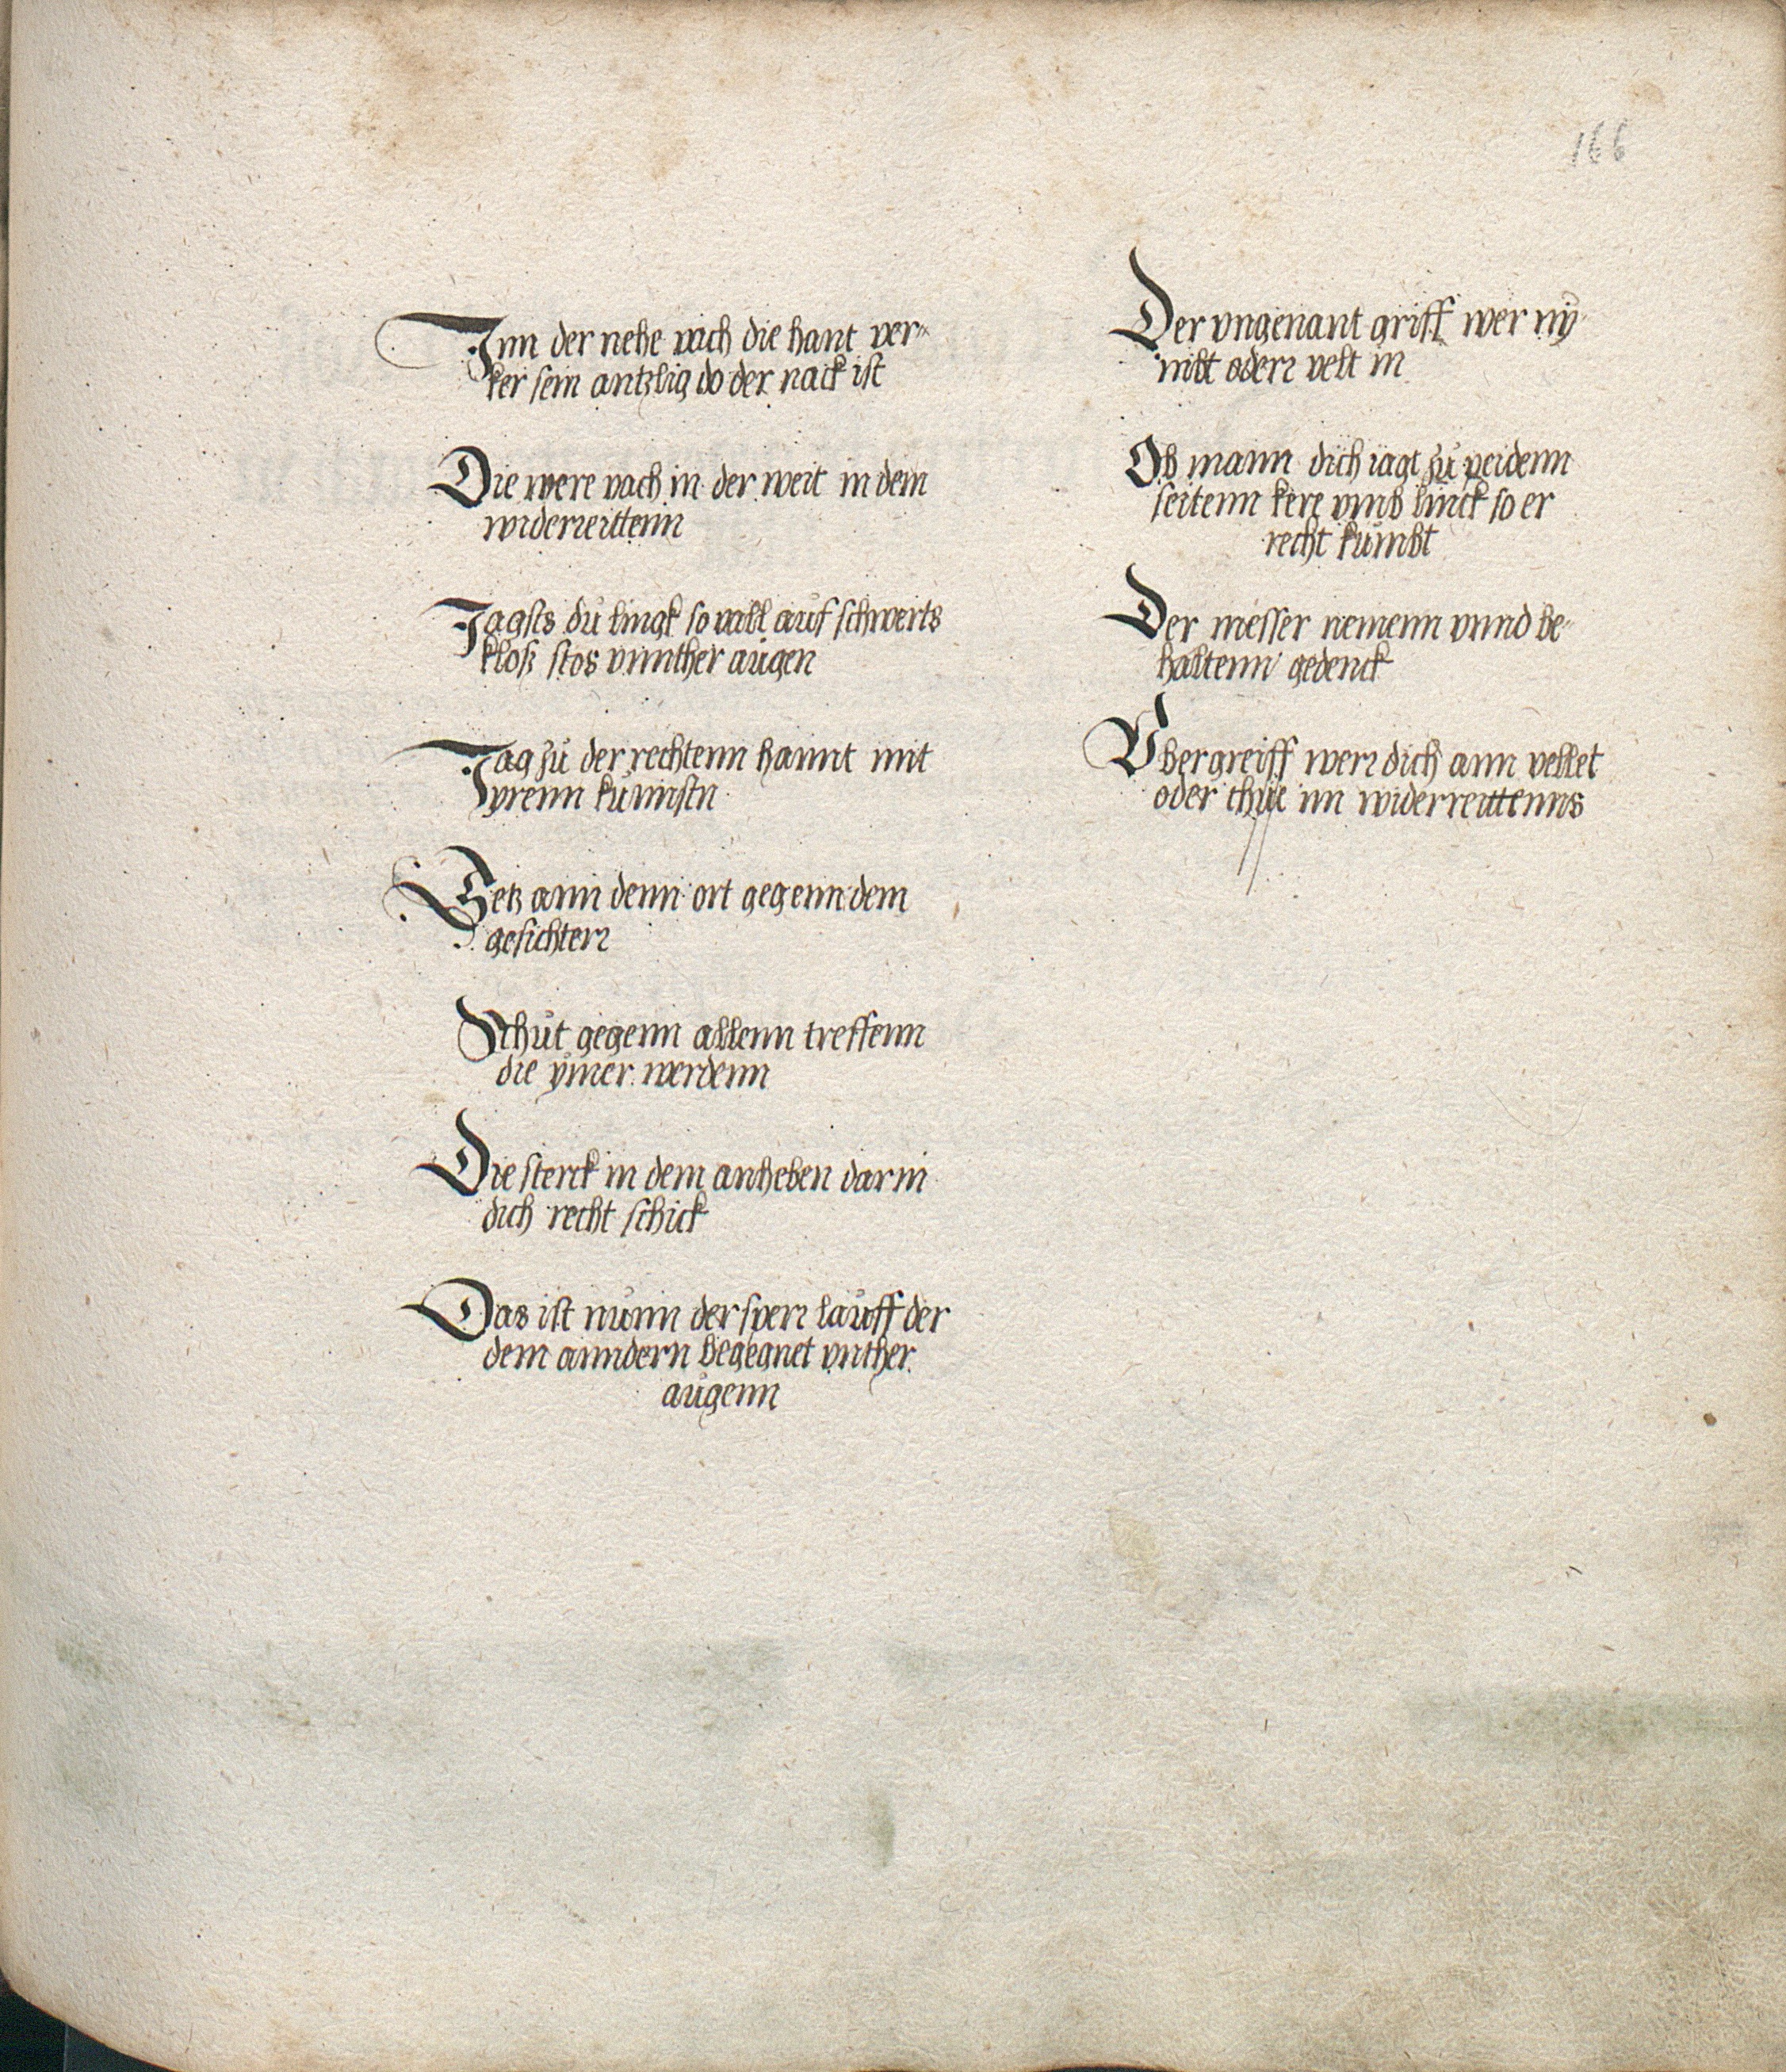 166
Inn der nehe vach die hant ver„
ker sein antzlig do der nack ist
Die were vach in der weit in dem
widerreittenn
Jagsts dü lingk so vall auf schwerts
kloß stos vnnther aügen
Jag zü der rechtenn hannt mit
yrenn künnstn
Setz ann denn ort gegenn dem
gesichterr
Schüt gegenn allenn treffenn
die ymer werdenn
Die sterck in dem anheben darin
dich recht schick
Das ist nünn der sperr lauff der
dem anndern begegnet vnther
augenn
Der vngenant griff wer ny
nibt oderr velt in
Ob mann dich iagt zü peidenn
seitenn kere vmb linck so er
recht kümbt
Der messer nemenn vnnd be„
haltenn gedenck
Vbergreiff werr dich ann vellet
oder thue im widerreittenns